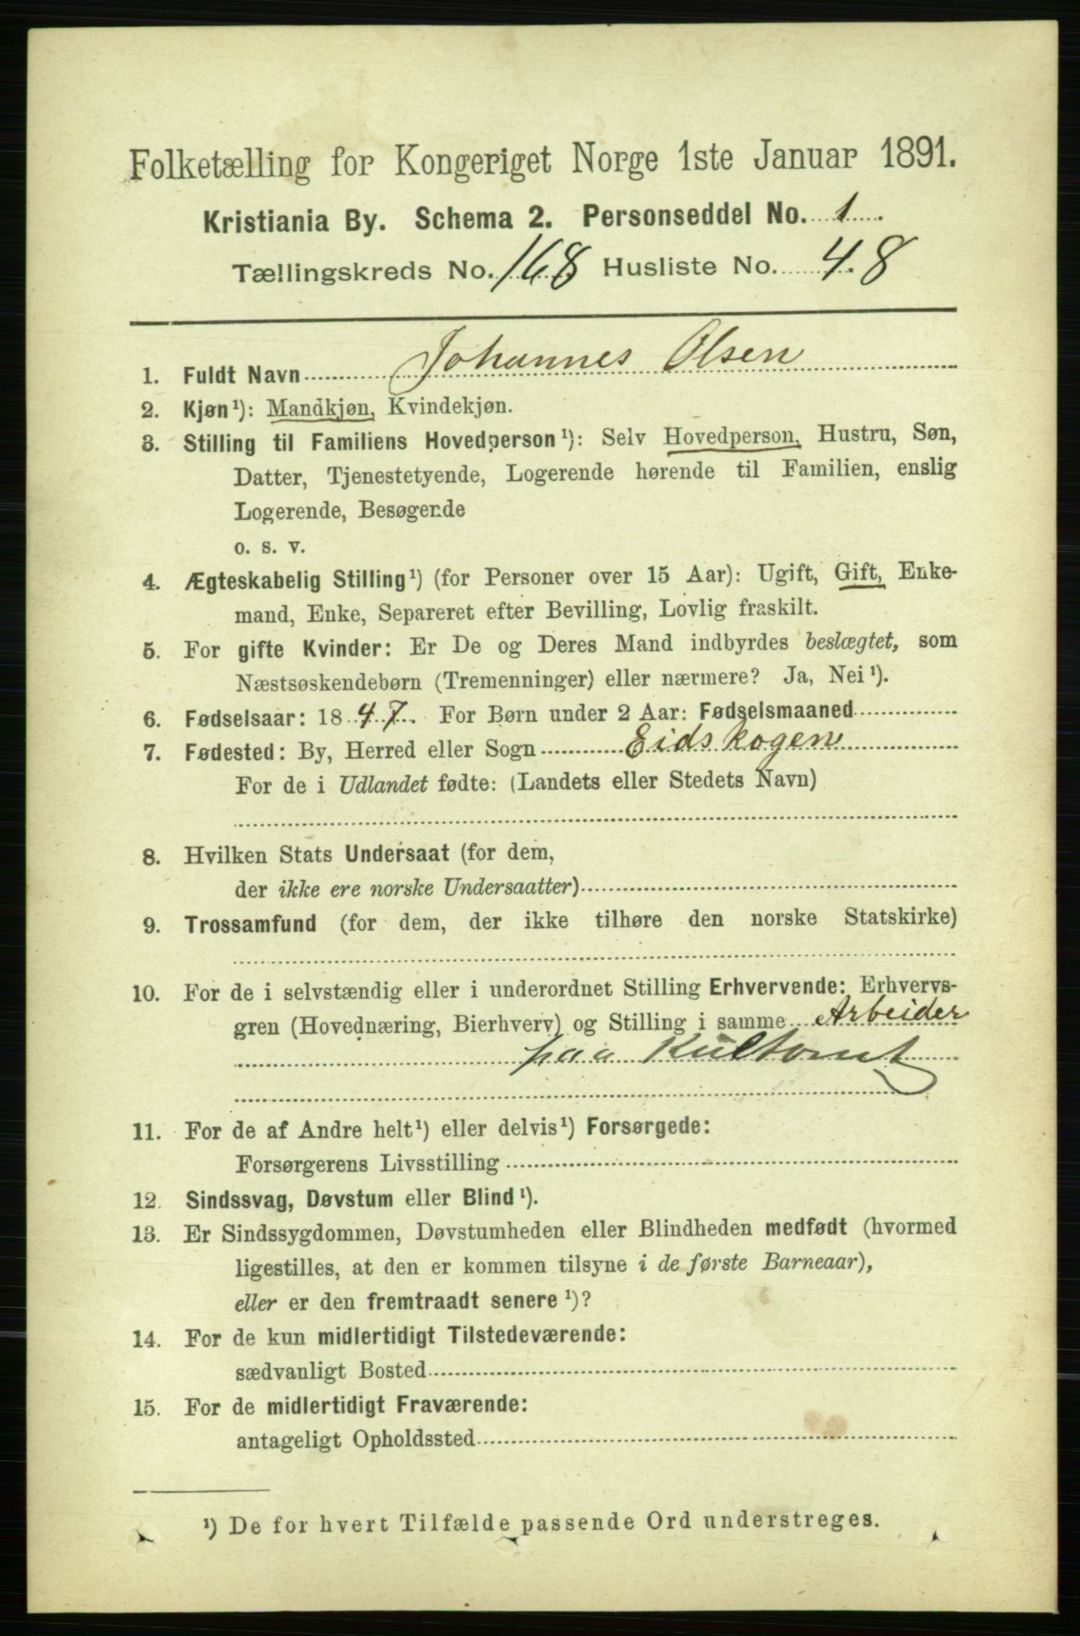 Folketælling for Kongeriget Norge 1ste Januar 1891.
Kristiania By. Schema 2. Personseddel No. 1.
Tællingskreds No. 168 Husliste No. 48
1. Fuldt Navn Johannes Olsen
2. Kjøn¹): Mandkjøn, Kvindekjøn.
3. Stilling til Familiens Hovedperson¹): Selv Hovedperson, Hustru, Søn,
Datter, Tjenestetyende, Logerende hørende til Familien, enslig
Logerende, Besøgende
o. s. v.
4. Ægteskabelig Stilling¹) (for Personer over 15 Aar): Ugift, Gift, Enke-
mand, Enke, Separeret efter Bevilling, Lovlig fraskilt.
5. For gifte Kvinder: Er De og Deres Mand indbyrdes beslægtet, som
Næstsøskendebørn (Tremenninger) eller nærmere? Ja, Nei¹).
6. Fødselsaar: 1847. For Børn under 2 Aar: Fødselsmaaned
7. Fødested: By, Herred eller Sogn Eidskogen
For de i Udlandet fødte: (Landets eller Stedets Navn)
8. Hvilken Stats Undersaat (for dem,
der ikke ere norske Undersaatter)
9. Trossamfund (for dem, der ikke tilhøre den norske Statskirke)
10. For de i selvstændig eller i underordnet Stilling Erhvervende: Erhvervs-
gren (Hovednæring, Bierhverv) og Stilling i samme Arbeider
paa Kultomt
11. For de af Andre helt¹) eller delvis¹) Forsørgede:
Forsørgerens Livsstilling
12. Sindssvag, Døvstum eller Blind¹).
13. Er Sindssygdommen, Døvstumheden eller Blindheden medfødt (hvormed
ligestilles, at den er kommen tilsyne i de første Barneaar),
eller er den fremtraadt senere¹)?
14. For de kun midlertidigt Tilstedeværende:
sædvanligt Bosted
15. For de midlertidigt Fraværende:
antageligt Opholdssted
¹) De for hvert Tilfælde passende Ord understreges.